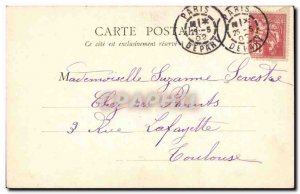 PARIS
DEPART
PARIS
DEPART
CARTE POSTALE
Ce côté est exclusivement réservé
Mademoiselle Suzanne Sevestre
Chez ses Parents
3 Rue Lafayette
Toulouse